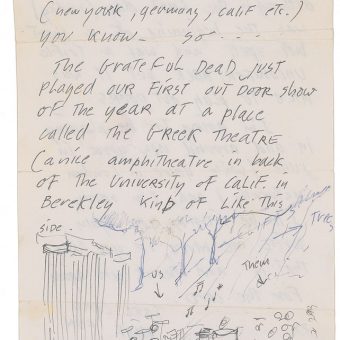 (new york, germany, calif etc.)
you know – so . . . .
The Grateful Dead just
played our first out door show
of the year at a place
called the Greek Theatre
(a nice amphitheatre in back
of the University of Calif. in
Berekley kind of like this
side
Trees
us
Them